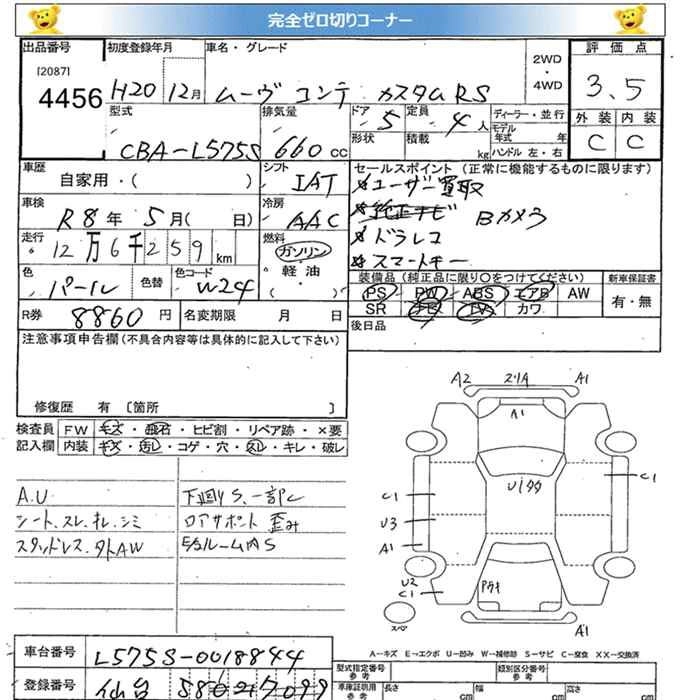 完全ゼロ切りコーナー
出品番号 初度登録年月 車名・グレード 2WD ・ 4WD 評価点
[2087]
4456 H20 12月 ムーヴ コンテ カスタムRS 3.5
型式 排気量 ドア 定員 ディーラー・並行 外装 内装
CBA-L575S 660cc 5 4人 モデル年式 年 C C
形状 積載 kg ハンドル 左・右
車歴 シフト セールスポイント (正常に機能するものに限ります)
自家用・( ) IAT ユーザー買取
車検 冷房 純正ナビ Bカメラ
R8年 5月( 日) AAC ドラレコ
走行 燃料 スマートキー
12万6千259km ガソリン
色 色替 色コード 軽油
パール W24 ( )
装備品(純正品に限り○をつけてください) 新車保証書
PS PW ABS エアB AW 有・無
SR ナビ TV カワ
R券 8860円 名変期限 月 日 後日品
注意事項申告欄(不具合内容等は具体的に記入して下さい)
修復歴 有 [箇所 ]
検査員 FW キズ・飛石・ヒビ割・リペア跡・×要
記入欄 内装 キズ・汚レ・コゲ・穴・スレ・キレ・破レ
A.U 下廻りS、一部C
シート、スレ、キレ、シミ ロアサポート 歪み
スタッドレス、外AW
A2 スリA A1
A1
Ulタタ
C1 C1
U3
A1
U2
C1
スペア
A1
A-キズ E-エクボ U-凹み W-補修跡 S-サビ C-腐食 XX-交換済
車台番号 L575S-0018844 型式指定番号 参考 類別区分番号 参考
登録番号 仙台 580 車庫証明用 参考 長さ cm 幅 cm 高さ cm